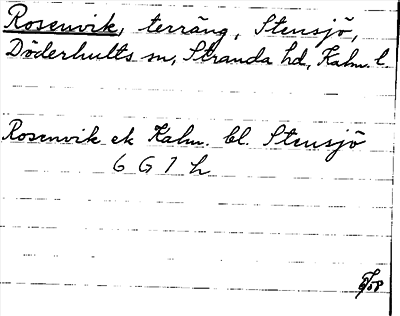 Rosenvik, terräng, Stensjö,
Döderhults sn, Stranda hd, Kalm. l.
Rosenvik ek Kalm. bl. Stensjö
6 G 1 h